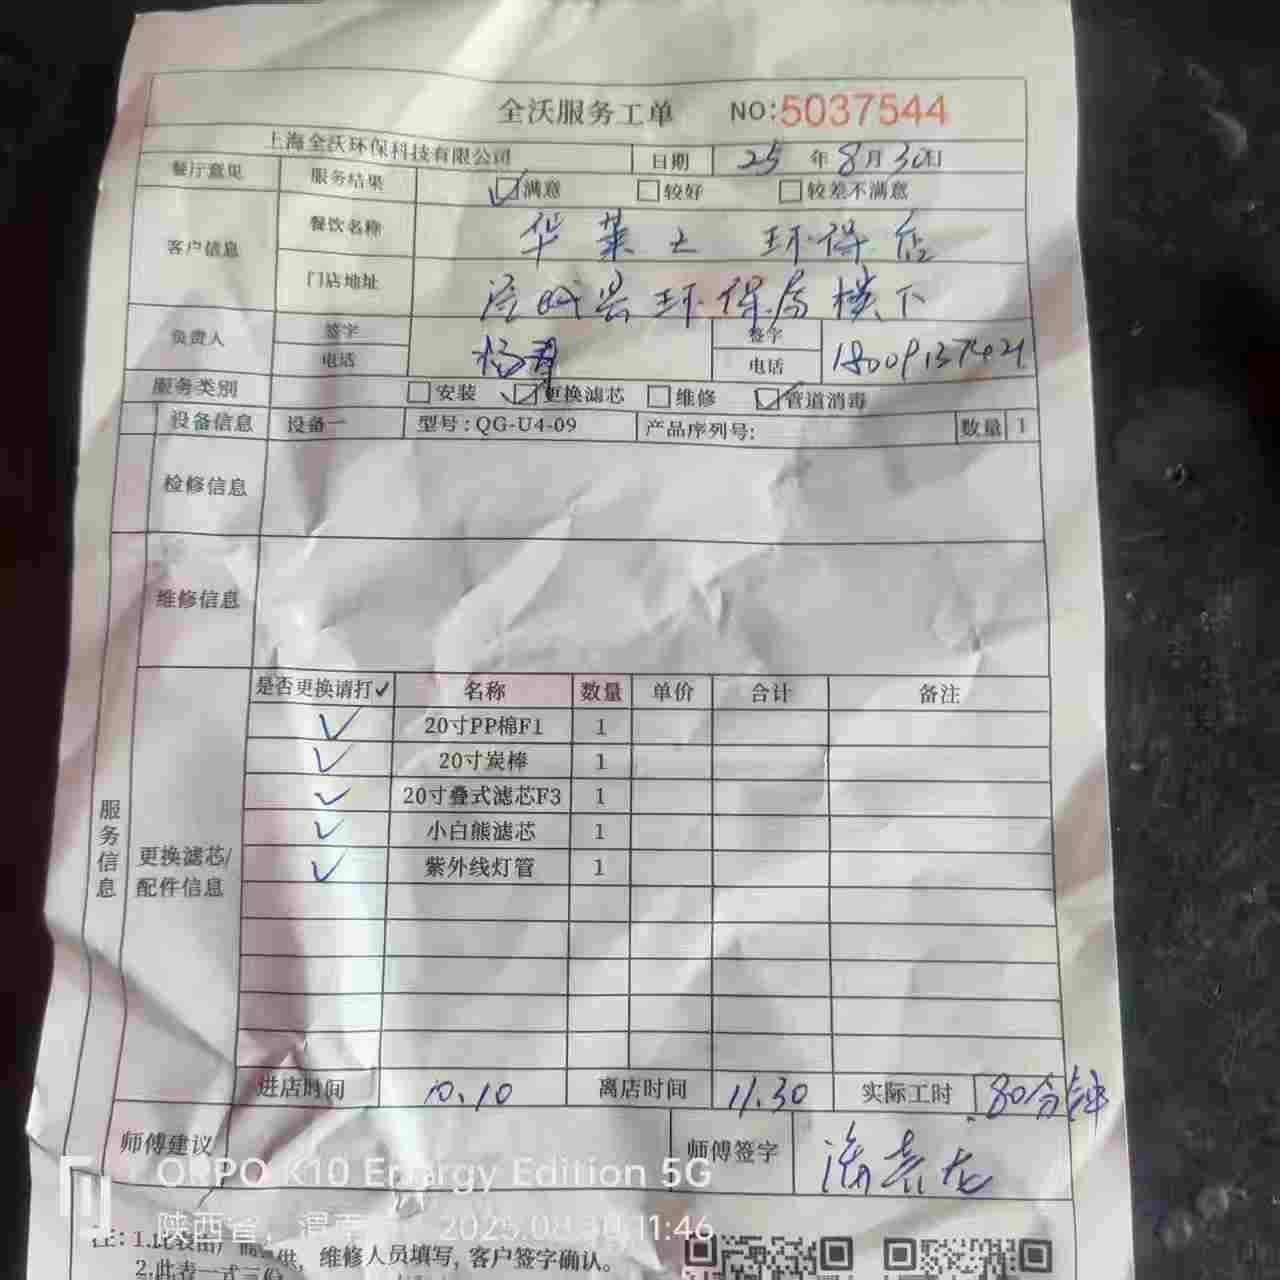 全沃服务工单 NO:5037544
上海全沃环保科技有限公司 日期 25年8月30日
餐厅意见 服务结果 满意 较好 较差不满意
客户信息 餐饮名称 华莱士 环保店
门店地址 县环保局楼下
负责人 签字 杨 签字
电话 电话 18009137421
服务类别 安装 更换滤芯 维修 管道消毒
设备信息 设备一 型号:QG-U4-09 产品序列号: 数量 1
检修信息
维修信息
服务信息
更换滤芯/配件信息
是否更换请打✓ 名称 数量 单价 合计 备注
✓ 20寸PP棉F1 1
✓ 20寸炭棒 1
✓ 20寸叠式滤芯F3 1
✓ 小白熊滤芯 1
✓ 紫外线灯管 1
进店时间 10.10 离店时间 11.30 实际工时 80分钟
师傅建议 师傅签字
ORPO K10 Energy Edition 5G
陕西省, 2025.08.30 11:46
注:1.此表由 供,维修人员填写,客户签字确认。
2.此表一式三份